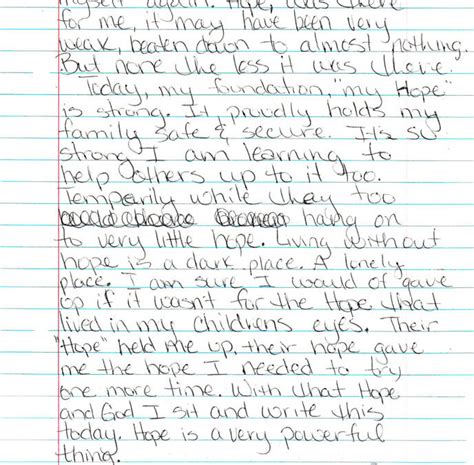 myself again. Hope, was there
for me, it may have been very
weak, beaten down to almost nothing.
But none the less it was there.
Today, my foundation, "my Hope"
is strong. It, proudly holds my
family safe & secure. It's so
strong I am learning to
help others up to it too.
Temperily while they too
hang on
to very little hope. Living without
hope is a dark place. A lonely
place. I am sure I would of gave
up if it wasn't for the Hope that
lived in my childrens eyes. Their
"Hope" held me up, their hope gave
me the hope I needed to try
one more time. With that Hope
and God I sit and write this
today. Hope is a very powerful
thing.